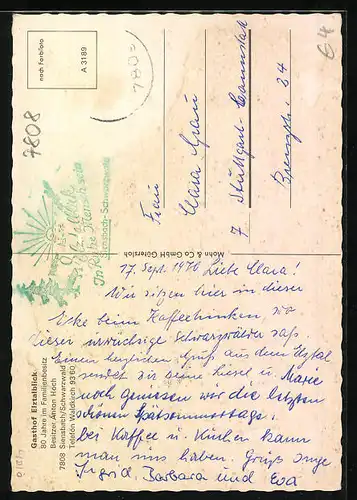 Gasthof Elztalblick
80 Jahre im Familienbesitz
Besitzer Anton Hoch
7808 Siensbach/Schwarzwald
Telefon Waldkirch 93 60
nach Farbfoto
A 3189
7808
7808
64
Siensbach-Schwarzwald
Mohn & Co GmbH Gütersloh
Frau
Clara Grau
7 Stuttgart-Cannstatt
34
17. Sept. 1976 Liebe Clara!
Wir sitzen hier in dieser
Ecke beim Kaffeetrinken, wo
dieser urwüchsige Schwarzwälder saß.
Einen herzlichen Gruß aus dem Elztal
sendet dir deine Liesel u. Marie
noch geniessen wir die letzten
schönen Spätsommertage.
bei Kaffee u. Kuchen kann
man uns haben. Grüß
Ingrid Barbara und Eva